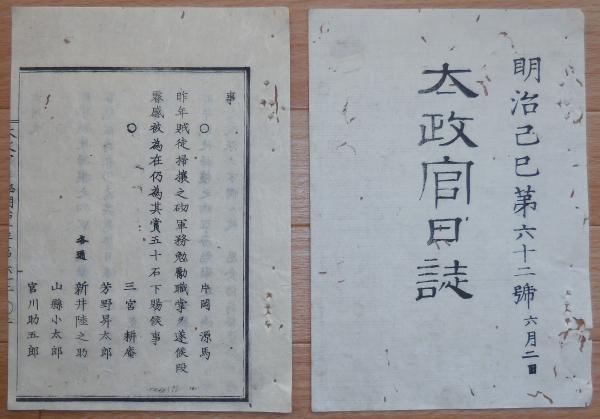 明治己巳第六十二號 六月二日
太政官日誌
事
○ 片岡 源馬
昨年賊徒掃攘之砌軍務勉勵職掌ヲ遂候段
叡感被為在仍為其賞五十石下賜候事
○ 三宮 耕庵
芳野昇太郎
各通 新井陸之助
山縣小太郎
宮川助五郎